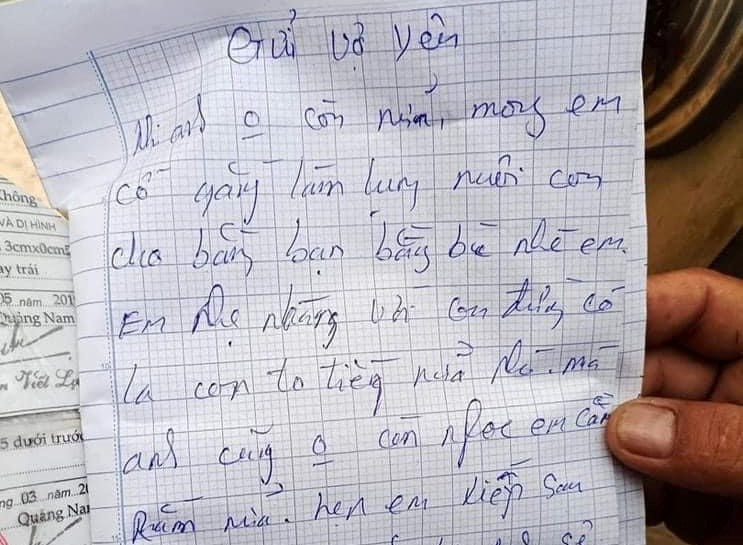 Gửi vợ Yến
Khi anh o còn nữa, mong em
cố gắng làm lụng nuôi con
cho bằng bạn bằng bè nhé em.
Em nhẹ nhàng với con đừng có
la con to tiếng nữa nhé. mà
anh cũng o còn học em cằn
Rằm nữa. hẹn em kiếp sau
Không
VÀ DỊ HÌNH
3cmx0cm
ay trái
05 năm 201
Quảng Nam
Tiết
5 dưới trước
ng 03 năm 2
Quảng Na